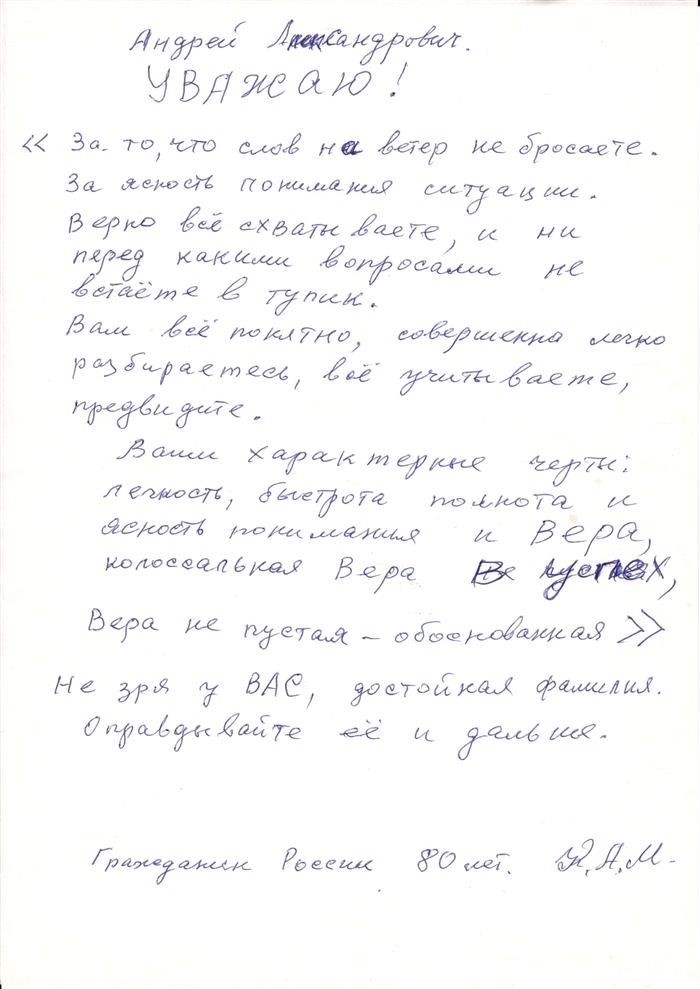 Андрей Александрович.
УВАЖАЮ!
« За то, что слов на ветер не бросаете.
За ясность понимания ситуации.
Верно всё схватываете, и ни
перед какими вопросами не
встаёте в тупик.
Вам всё понятно, совершенно легко
разбираетесь, всё учитываете,
предвидите.
Ваши характерные черты:
легкость, быстрота полнота и
ясность понимания и Вера,
колоссальная Вера В успех,
Вера не пустая – обоснованная »
Не зря у ВАС, достойная фамилия.
Оправдывайте её и дальше.
Гражданин России 80 лет. К.А.М.